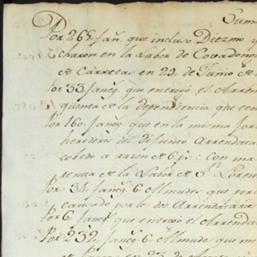 Suma
Por 265 fan.s que incluso Diezmo y
charon en la Labor de
de Carretas en 29 de Junio de
Por 33 faneg.s que entregó el
quenta de la dependencia que ten
Por 160 faneg.s que en la misma for
herederos del difunto Arrendata
cobró a razon de 6 p.s Con mas
renta de la Labor de S. Loren
Por 34 faneg.s 6 Almudes que
causado por los dos Arrendatarios
Por 6 faneg.s que entregó el Arrenda
Por 252 faneg.s 6 Almudes que me